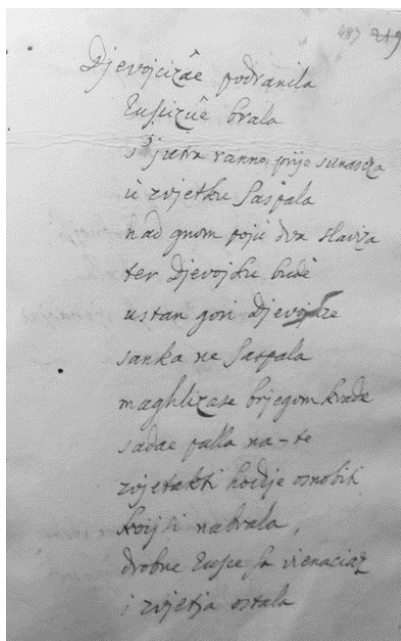 487 219
Djevojcizâe podranila
Ruſizûe brala
s'jutra ranno prije sunasza
ù zvjetku ſaſpala
nad gnom poju dva slaviza
ter djevojku budê
ustan gori djevojko
sanka ne ſaspala
maghlizase brjegom krade
sadae palla na-te
zvjetakti hochje osnobiti
koijsi nabrala,
drobne ruſize ſa vienaciaz
i zvjetja ostala